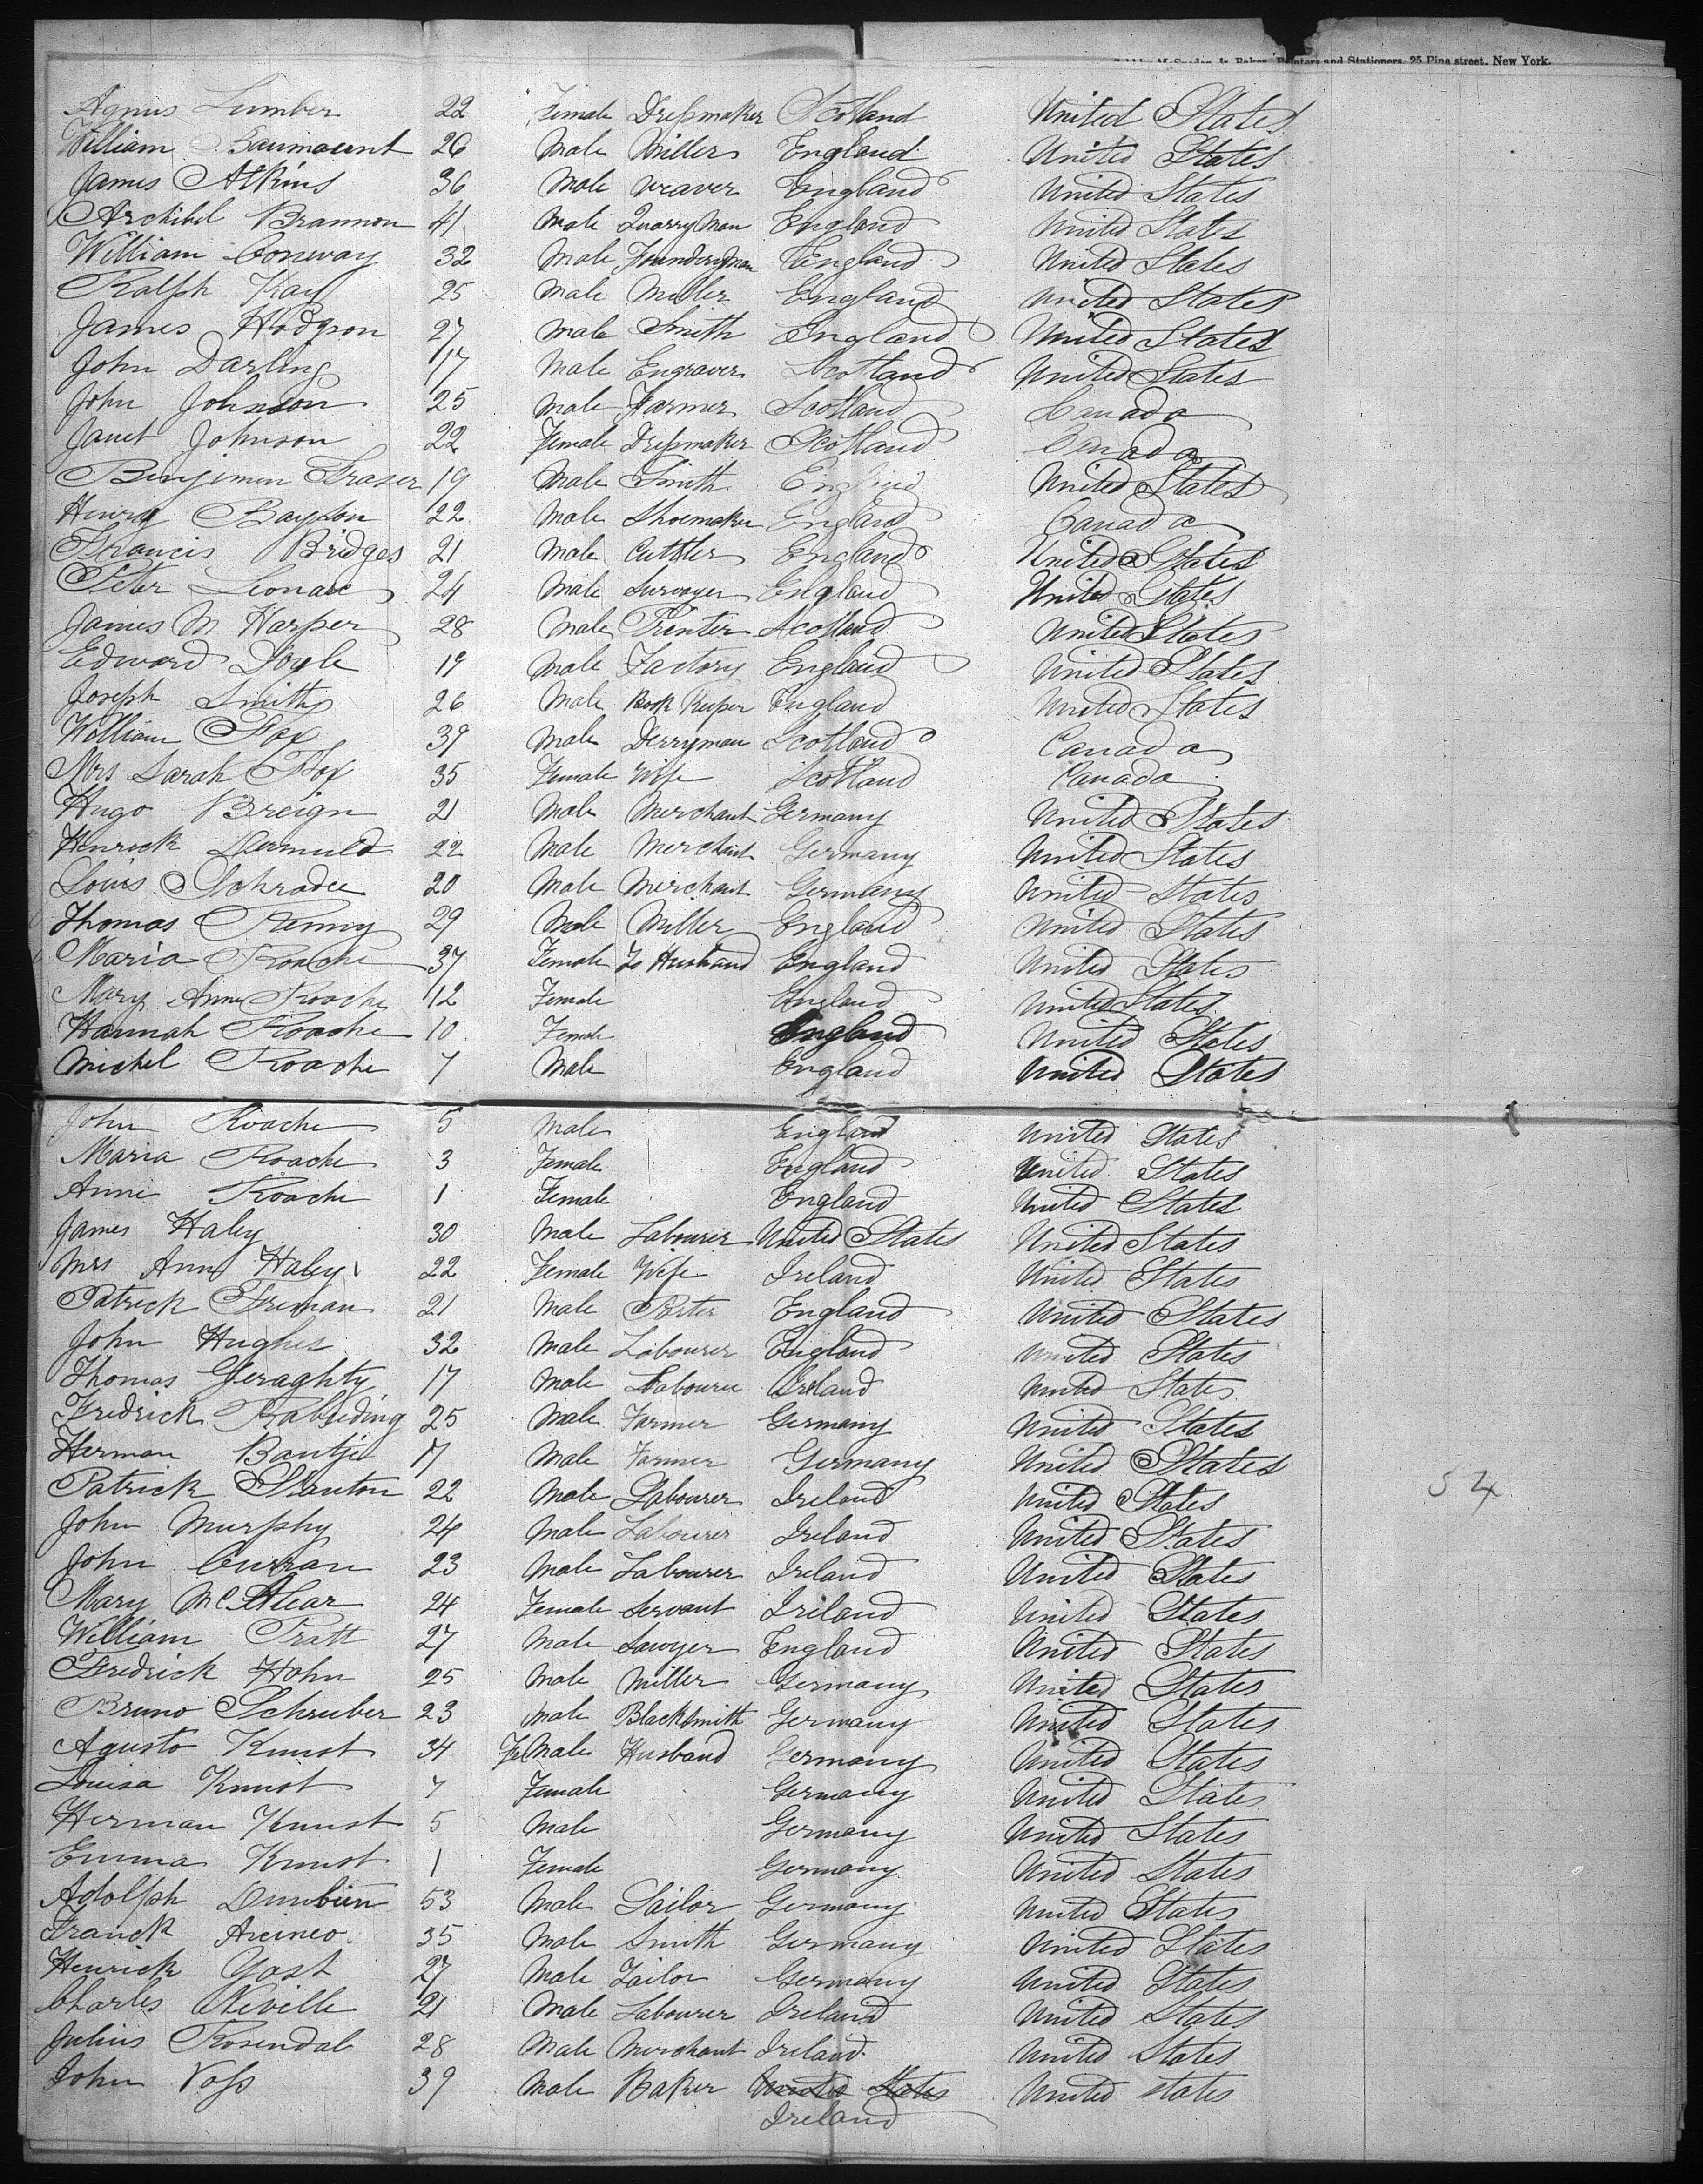 Printers and Stationers, 25 Pine street, New York.
Agnus Lumber 22 Female Dressmaker Scotland United States
William Baumount 26 Male Miller England United States
James Atkins 36 Male Weaver England United States
Archibel Brannon 41 Male Quarry Man England United States
William Conway 32 Male Founderyman England United States
Ralph Kay 25 Male Miller England United States
James Hodgson 27 Male Smith England United States
John Darling 17 Male Engraver Scotland United States
John Johnson 25 Male Farmer Scotland Canada
Janet Johnson 22 Female Dressmaker Scotland Canada
Benjimen Fraser 19 Male Smith England United States
Henry Bayton 22 Male Shoemaker England Canada
Francis Bridges 21 Male Cuttler England United States
Peter 24 Male Surveyer England United States
James M Harper 28 Male Printer Scotland United States
Edward Doyle 19 Male Factory England United States
Joseph Smith 26 Male Book Keeper England United States
William Fox 39 Male Derryman Scotland Canada
Mrs Sarah Fox 35 Female Wife Scotland Canada
Hugo Breign 21 Male Merchant Germany United States
Henrick 22 Male Merchant Germany United States
Louis Schrader 20 Male Merchant Germany United States
Thomas Penny 29 Male Miller England United States
Maria Roache 37 Female To Husband England United States
Mary Anne Roache 12 Female England United States
Hannah Roache 10 Female England United States
Michel Roache 7 Male England United States
John Roache 5 Male England United States
Maria Roache 3 Female England United States
Anne Roache 1 Female England United States
James Haley 30 Male Labourer United States United States
Mrs Ann Haley 22 Female Wife Ireland United States
Patrick Freman 21 Male Porter England United States
John Hughes 32 Male Labourer England United States
Thomas Geraghty 17 Male Labourer Ireland United States
Fredrick Rabeeding 25 Male Farmer Germany United States
Herman Bantje 17 Male Farmer Germany United States
Patrick Stanton 22 Male Labourer Ireland United States
54
John Murphy 24 Male Labourer Ireland United States
John Curran 23 Male Labourer Ireland United States
Mary McAlear 24 Female Servant Ireland United States
William Pratt 27 Male Sawyer England United States
Fredrick Hohn 25 Male Miller Germany United States
Bruno Schruber 23 Male Blacksmith Germany United States
Agusto Kunst 34 FeMale Husband Germany United States
Louisa Kunst 7 Female Germany United States
Herman Kunst 5 Male Germany United States
Emma Kunst 1 Female Germany United States
Adolph 53 Male Sailor Germany United States
Franck 35 Male Smith Germany United States
Henrick Yost 27 Male Tailor Germany United States
Charles Neville 21 Male Labourer Ireland United States
Julius Rosendal 28 Male Merchant Ireland United States
John Voss 39 Male Baker United States United States
Ireland